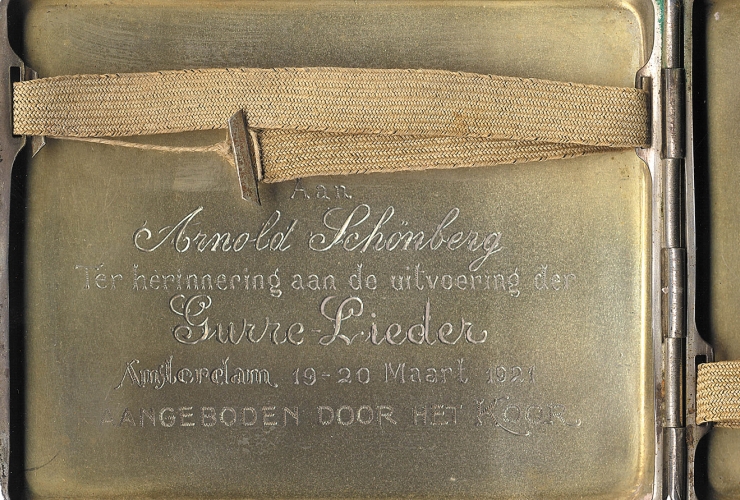 Aan
Arnold Schönberg
Tér herinnering aan de uitvoering der
Gurre-Lieder
Amsterdam, 19-20 Maart 1921
AANGEBODEN DOOR HET KOOR.